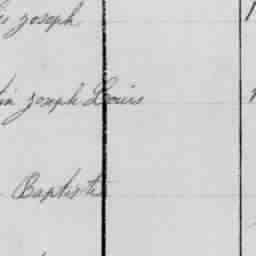 joseph
joseph Louis
Baptiste